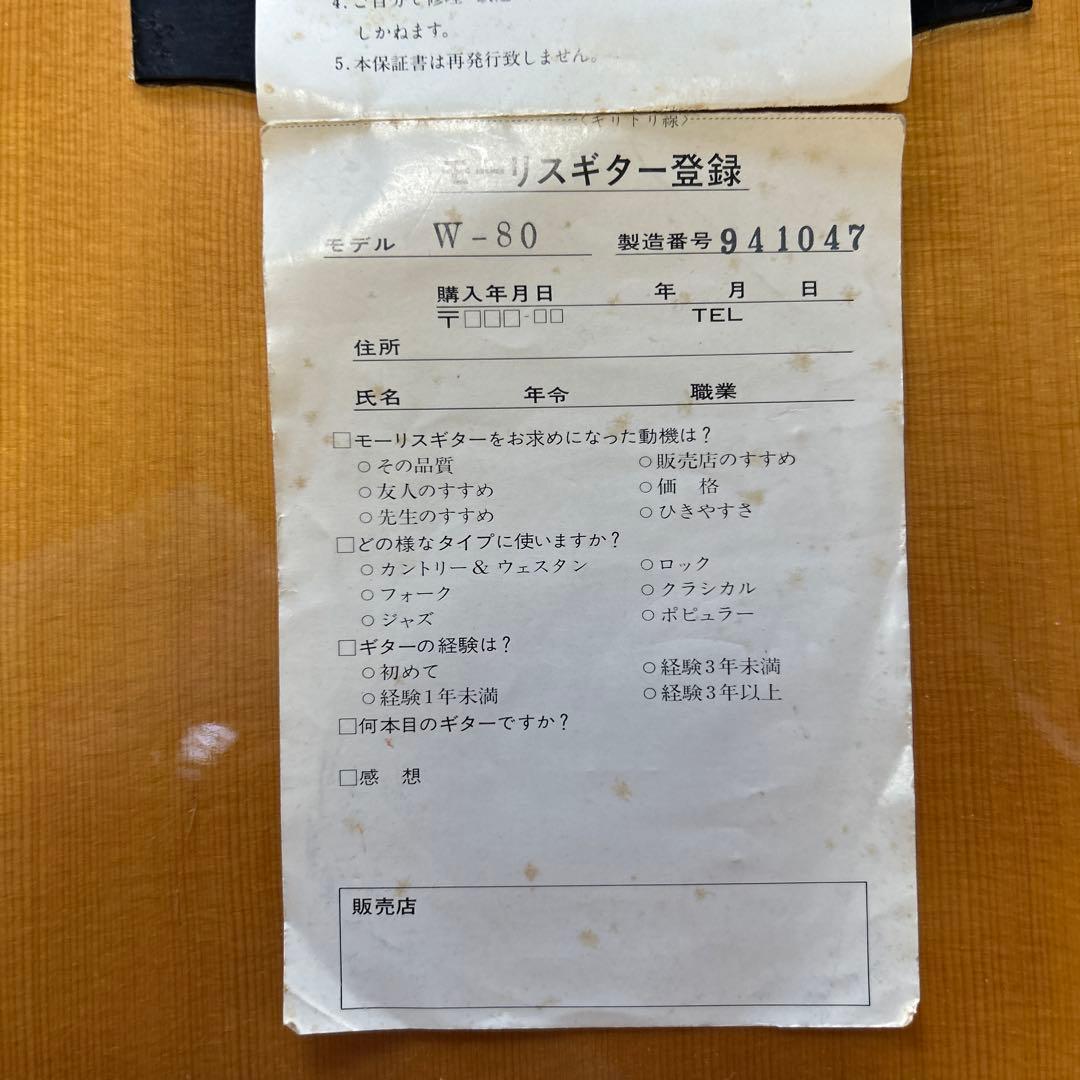 4.ご自分で修理
しかねます。
5.本保証書は再発行致しません。
〈キリトリ線〉
モーリスギター登録
モデル W-80 製造番号 941047
購入年月日 年 月 日
〒□□□-□□ TEL
住所
氏名 年令 職業
□モーリスギターをお求めになった動機は？
○その品質 ○販売店のすすめ
○友人のすすめ ○価 格
○先生のすすめ ○ひきやすさ
□どの様なタイプに使いますか？
○カントリー&ウェスタン ○ロック
○フォーク ○クラシカル
○ジャズ ○ポピュラー
□ギターの経験は？
○初めて ○経験3年未満
○経験1年未満 ○経験3年以上
□何本目のギターですか？
□感 想
販売店